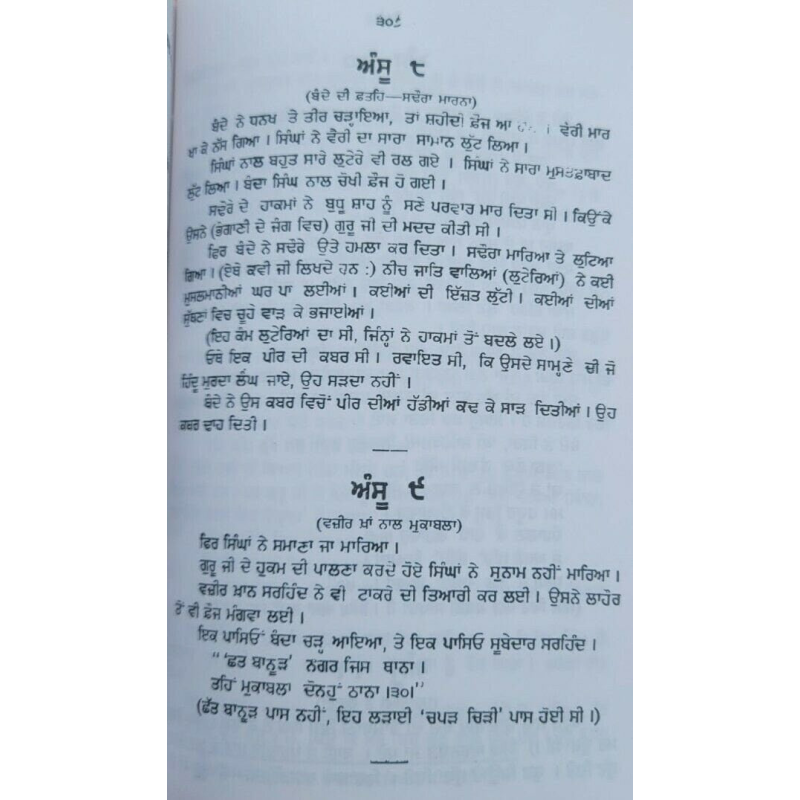 ੩੦੮
ਅੰਸੂ ੮
(ਬੰਦੇ ਦੀ ਫ਼ਤਹਿ—ਸਢੌਰਾ ਮਾਰਨਾ)
ਬੰਦੇ ਨੇ ਧਨਖ ਤੇ ਤੀਰ ਚੜ੍ਹਾਇਆ, ਤਾਂ ਸ਼ਹੀਦੀ ਫ਼ੌਜ ਆ ਵੈਰੀ ਮਾਰ
ਖਾ ਕੇ ਨੱਸ ਗਿਆ । ਸਿੰਘਾਂ ਨੇ ਵੈਰੀ ਦਾ ਸਾਰਾ ਸਾਮਾਨ ਲੁੱਟ ਲਿਆ ।
ਸਿੰਘਾਂ ਨਾਲ ਬਹੁਤ ਸਾਰੇ ਲੁਟੇਰੇ ਵੀ ਰਲ ਗਏ । ਸਿੰਘਾਂ ਨੇ ਸਾਰਾ ਮੁਸਤਫ਼ਾਬਾਦ
ਲੁੱਟ ਲਿਆ । ਬੰਦਾ ਸਿੰਘ ਨਾਲ ਚੋਖੀ ਫ਼ੌਜ ਹੋ ਗਈ ।
ਸਢੌਰੇ ਦੇ ਹਾਕਮਾਂ ਨੇ ਬੁਧੂ ਸ਼ਾਹ ਨੂੰ ਸਣੇ ਪਰਵਾਰ ਮਾਰ ਦਿਤਾ ਸੀ । ਕਿਉਂਕੇ
ਉਸਨੇ (ਭੰਗਾਣੀ ਦੇ ਜੰਗ ਵਿਚ) ਗੁਰੂ ਜੀ ਦੀ ਮਦਦ ਕੀਤੀ ਸੀ ।
ਫਿਰ ਬੰਦੇ ਨੇ ਸਢੌਰੇ ਉਤੇ ਹਮਲਾ ਕਰ ਦਿਤਾ । ਸਢੌਰਾ ਮਾਰਿਆ ਤੇ ਲੁਟਿਆ
ਗਿਆ । (ਏਥੇ ਕਵੀ ਜੀ ਲਿਖਦੇ ਹਨ :) ਨੀਚ ਜਾਤਿ ਵਾਲਿਆਂ (ਲੁਟੇਰਿਆਂ) ਨੇ ਕਈ
ਮੁਸਲਮਾਨੀਆਂ ਘਰ ਪਾ ਲਈਆਂ । ਕਈਆਂ ਦੀ ਇੱਜ਼ਤ ਲੁੱਟੀ । ਕਈਆਂ ਦੀਆਂ
ਸੁੱਥਣਾਂ ਵਿਚ ਚੂਹੇ ਵਾੜ ਕੇ ਭਜਾਈਆਂ ।
(ਇਹ ਕੰਮ ਲੁਟੇਰਿਆਂ ਦਾ ਸੀ, ਜਿੰਨ੍ਹਾਂ ਨੇ ਹਾਕਮਾਂ ਤੋਂ ਬਦਲੇ ਲਏ ।)
ਓਥੇ ਇਕ ਪੀਰ ਦੀ ਕਬਰ ਸੀ । ਰਵਾਇਤ ਸੀ, ਕਿ ਉਸਦੇ ਸਾਮ੍ਹਣੇ ਦੀ ਜੋ
ਹਿੰਦੂ ਮੁਰਦਾ ਲੰਘ ਜਾਏ, ਉਹ ਸੜਦਾ ਨਹੀਂ ।
ਬੰਦੇ ਨੇ ਉਸ ਕਬਰ ਵਿਚੋਂ ਪੀਰ ਦੀਆਂ ਹੱਡੀਆਂ ਕਢ ਕੇ ਸਾੜ ਦਿਤੀਆਂ । ਉਹ
ਕਬਰ ਢਾਹ ਦਿਤੀ ।
ਅੰਸੂ ੯
(ਵਜ਼ੀਰ ਖ਼ਾਂ ਨਾਲ ਮੁਕਾਬਲਾ)
ਫਿਰ ਸਿੰਘਾਂ ਨੇ ਸਮਾਣਾ ਜਾ ਮਾਰਿਆ ।
ਗੁਰੂ ਜੀ ਦੇ ਹੁਕਮ ਦੀ ਪਾਲਣਾ ਕਰਦੇ ਹੋਏ ਸਿੰਘਾਂ ਨੇ ਸੁਨਾਮ ਨਹੀਂ ਮਾਰਿਆ ।
ਵਜ਼ੀਰ ਖ਼ਾਨ ਸਰਹਿੰਦ ਨੇ ਵੀ ਟਾਕਰੇ ਦੀ ਤਿਆਰੀ ਕਰ ਲਈ । ਉਸਨੇ ਲਾਹੌਰ
ਤੋਂ ਵੀ ਫ਼ੌਜ ਮੰਗਵਾ ਲਈ ।
ਇਕ ਪਾਸਿਓਂ ਬੰਦਾ ਚੜ੍ਹ ਆਇਆ, ਤੇ ਇਕ ਪਾਸਿਓ ਸੂਬੇਦਾਰ ਸਰਹਿੰਦ ।
“ ‘ਛਤ ਬਾਨੂੜ’ ਨਗਰ ਜਿਸ ਥਾਨਾ ।
ਤਹਿਂ ਮੁਕਾਬਲਾ ਦੋਨਹੁਂ ਠਾਨਾ ।੩੦।”
(ਛੱਤ ਬਾਨੂੜ ਪਾਸ ਨਹੀਂ, ਇਹ ਲੜਾਈ ‘ਚਪੜ ਚਿੜੀ’ ਪਾਸ ਹੋਈ ਸੀ ।)